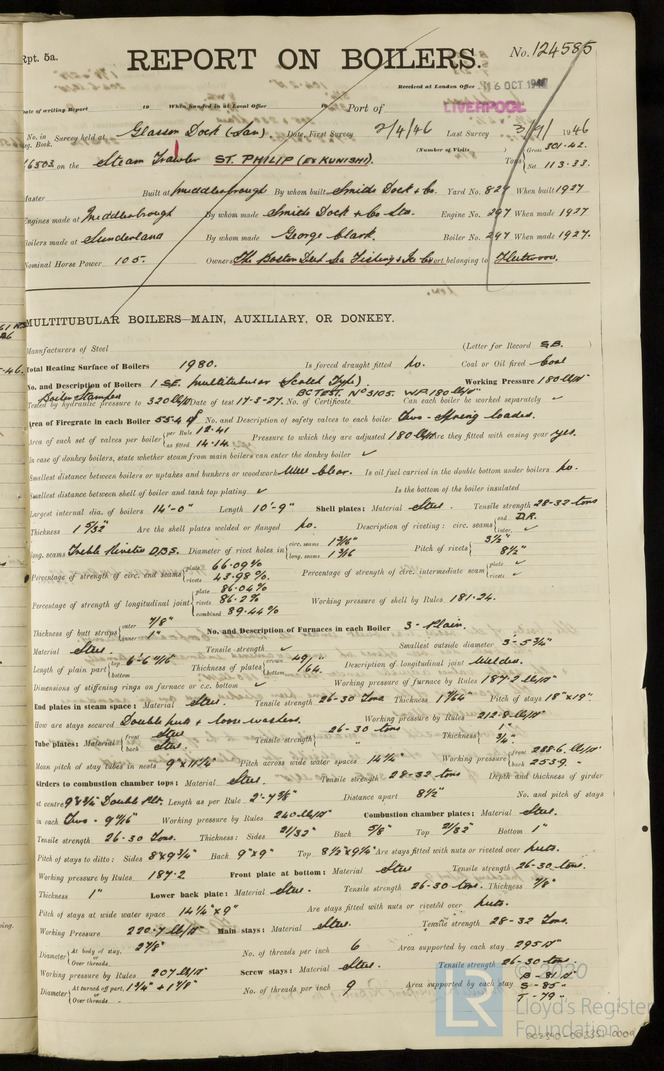 Rpt. 5a.
REPORT ON BOILERS.
No. 124585
Received at London Office 16 OCT 1946
Date of writing Report to When handed in at Local Office to Port of LIVERPOOL
No. in Reg. Book. Survey held at Glasson Dock (Lan) Date, First Survey 2/4/46 Last Survey 3/9/1946
(Number of Visits
16503 on the Steam Trawler ST. PHILIP (EX KUNISHI). Tons Gross 301.42.
Net 113.33.
Master Built at Middlesbrough By whom built Smiths Dock & Co. Yard No. 827 When built 1927
Engines made at Middlesbrough By whom made Smiths Dock & Co Ltd. Engine No. 297 When made 1927
Boilers made at Sunderland By whom made George Clark. Boiler No. 247 When made 1927.
Nominal Horse Power 105. Owners The Boston Deep Sea Fishing & Ice Co Port belonging to Fleetwood.
MULTITUBULAR BOILERS—MAIN, AUXILIARY, OR DONKEY.
Manufacturers of Steel (Letter for Record S.B. )
Total Heating Surface of Boilers 1980. Is forced draught fitted No. Coal or Oil fired Coal
No. and Description of Boilers 1 S.E. multitubular (Scotch Type). Working Pressure 180 lb/□"
Boiler Stamped BC TEST. No 3105. WP. 180 lb/□"
Tested by hydraulic pressure to 320 lb/□" Date of test 17-3-27. No. of Certificate Can each boiler be worked separately ✓
Area of Firegrate in each Boiler 55.4 □' No. and Description of safety valves to each boiler Two - Spring loaded.
Area of each set of valves per boiler per Rule 12.41 as fitted 14.14 Pressure to which they are adjusted 180 lb/□" Are they fitted with easing gear yes.
In case of donkey boilers, state whether steam from main boilers can enter the donkey boiler ✓
Smallest distance between boilers or uptakes and bunkers or woodwork Well clear. Is oil fuel carried in the double bottom under boilers No.
Smallest distance between shell of boiler and tank top plating ✓ Is the bottom of the boiler insulated
Largest internal dia. of boilers 14'-0" Length 10'-9" Shell plates: Material Steel Tensile strength 28-32 tons
Thickness 1 5/32" Are the shell plates welded or flanged No. Description of riveting: circ. seams end D.R. inter. ✓
long. seams Treble Riveted D.B.S. Diameter of rivet holes in circ. seams 1 3/16" long. seams 1 3/16 Pitch of rivets 3 1/2" 8 1/2"
Percentage of strength of circ. end seams plate 66.09% rivets 43.98%. Percentage of strength of circ. intermediate seam plate ✓ rivets ✓
Percentage of strength of longitudinal joint plate 86.04% rivets 86.2% combined 89.44% Working pressure of shell by Rules 181.24.
Thickness of butt straps outer 7/8" inner 1" No. and Description of Furnaces in each Boiler 3 - Plain.
Material Steel. Tensile strength ✓ Smallest outside diameter 3'-5 3/4"
Length of plain part top 6'-6 11/16 bottom Thickness of plates crown 49/64" bottom Description of longitudinal joint Welded.
Dimensions of stiffening rings on furnace or c.c. bottom ✓ Working pressure of furnace by Rules 187.2 lb/□"
End plates in steam space: Material Steel. Tensile strength 26-30 Tons Thickness 1 9/64" Pitch of stays 18"x19"
How are stays secured Double nuts & loose washers. Working pressure by Rules 212.8 lb/□"
Tube plates: Material front Steel back Steel. Tensile strength 26-30 tons " Thickness 1" 3/4"
Mean pitch of stay tubes in nests 9"x11 1/4" Pitch across wide water spaces 14 1/4" Working pressure front 288.6. lb/□" back 253.9 -
Girders to combustion chamber tops: Material Steel. Tensile strength 28-32 tons Depth and thickness of girder
at centre 9"x3/4" Double Plt. Length as per Rule 2'-7 3/8" Distance apart 8 1/2" No. and pitch of stays
in each Two - 9 7/16" Working pressure by Rules 240 lb/□" Combustion chamber plates: Material Steel.
Tensile strength 26-30 Tons. Thickness: Sides 21/32" Back 5/8" Top 21/32" Bottom 1"
Pitch of stays to ditto: Sides 8"x9 3/4" Back 9"x9" Top 8 1/2"x9 1/4" Are stays fitted with nuts or riveted over Nuts.
Working pressure by Rules 187.2 Front plate at bottom: Material Steel Tensile strength 26-30 tons.
Thickness 1" Lower back plate: Material Steel. Tensile strength 26-30 tons. Thickness 7/8"
Pitch of stays at wide water space 14 1/4"x9" Are stays fitted with nuts or riveted over Nuts.
Working Pressure 220.7 lb/□" Main stays: Material Steel. Tensile strength 28-32 Tons.
Diameter At body of stay, or Over threads 2 7/8" No. of threads per inch 6 Area supported by each stay 295 □"
Working pressure by Rules 207 lb/□" Screw stays: Material Steel. Tensile strength 26-30 tons
Diameter At turned off part, or Over threads 1 3/4" + 1 7/8" No. of threads per inch 9 Area supported by each stay B - 81 □" S - 85 - T - 79 -
© 2020
Lloyd's Register
Foundation
LR